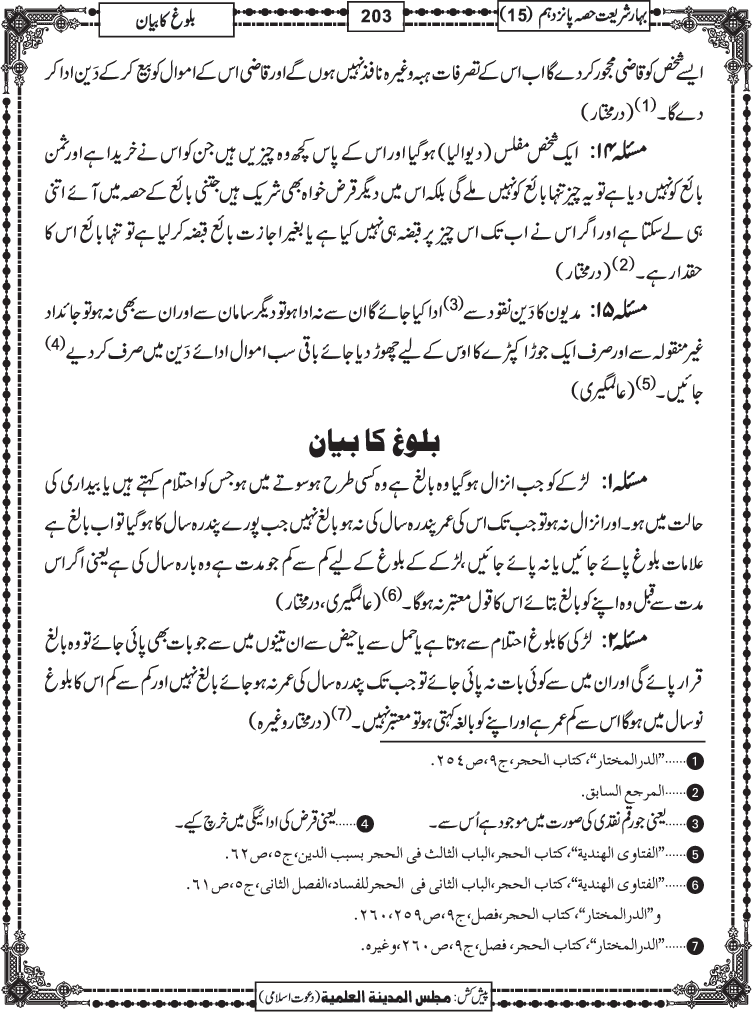 بہار شریعت حصہ پانزدہم (15)
203
بلوغ کا بیان
ایسے شخص کو قاضی مجبور کر دے گا اب اس کے تصرفات ہبہ وغیرہ نافذ نہیں ہوں گے اور قاضی اس کے اموال کو بیع کر کے دَین ادا کر
دے گا۔(1) (درمختار)
مسئلہ ۱۴: ایک شخص مفلس (دیوالیا) ہوگیا اور اس کے پاس کچھ وہ چیزیں ہیں جن کو اس نے خریدا ہے اور ثمن
بائع کو نہیں دیا ہے تو یہ چیز تنہا بائع کو نہیں ملے گی بلکہ اس میں دیگر قرض خواہ بھی شریک ہیں جتنی بائع کے حصہ میں آئے اتنی
ہی لے سکتا ہے اور اگر اس نے اب تک اس چیز پر قبضہ ہی نہیں کیا ہے یا بغیر اجازت بائع قبضہ کر لیا ہے تو تنہا بائع اس کا
حقدار ہے۔(2) (درمختار)
مسئلہ ۱۵: مدیون کا دَین نقود سے(3) ادا کیا جائے گا ان سے نہ ادا ہو تو دیگر سامان سے اور ان سے بھی نہ ہو تو جائداد
غیر منقولہ سے اور صرف ایک جوڑا کپڑے کا اوس کے لیے چھوڑ دیا جائے باقی سب اموال ادائے دَین میں صرف کر دیے(4)
جائیں۔(5) (عالمگیری)
بلوغ کا بیان
مسئلہ ۱: لڑکے کو جب انزال ہوگیا وہ بالغ ہے وہ کسی طرح ہو سوتے میں ہو جس کو احتلام کہتے ہیں یا بیداری کی
حالت میں ہو۔ اور انزال نہ ہو تو جب تک اس کی عمر پندرہ سال کی نہ ہو بالغ نہیں جب پورے پندرہ سال کا ہوگیا تو اب بالغ ہے
علامات بلوغ پائے جائیں یا نہ پائے جائیں، لڑکے کے بلوغ کے لیے کم سے کم جو مدت ہے وہ بارہ سال کی ہے یعنی اگر اس
مدت سے قبل وہ اپنے کو بالغ بتائے اس کا قول معتبر نہ ہوگا۔(6) (عالمگیری، درمختار)
مسئلہ ۲: لڑکی کا بلوغ احتلام سے ہوتا ہے یا حمل سے یا حیض سے ان تینوں میں سے جو بات بھی پائی جائے تو وہ بالغ
قرار پائے گی اور ان میں سے کوئی بات نہ پائی جائے تو جب تک پندرہ سال کی عمر نہ ہو جائے بالغ نہیں اور کم سے کم اس کا بلوغ
نو سال میں ہوگا اس سے کم عمر ہے اور اپنے کو بالغہ کہتی ہو تو معتبر نہیں۔(7) (درمختار وغیرہ)
1 ......”الدرالمختار“، کتاب الحجر، ج۹، ص۲۵٤.
2 ......المرجع السابق.
3 ......یعنی جو رقم نقدی کی صورت میں موجود ہے اُس سے۔ 4 ......یعنی قرض کی ادائیگی میں خرچ کیے۔
5 ......”الفتاوی الهندية“، کتاب الحجر، الباب الثالث فی الحجر بسبب الدین، ج٥، ص٦٢.
6 ......”الفتاوی الهندية“، کتاب الحجر، الباب الثانی فی الحجر للفساد، الفصل الثانی، ج٥، ص٦١.
و ”الدرالمختار“، کتاب الحجر، فصل، ج۹، ص۲۵۹، ۲٦۰.
7 ......”الدرالمختار“، کتاب الحجر، فصل، ج۹، ص۲٦۰، وغیرہ.
پیش کش: مجلس المدینة العلمیة (دعوت اسلامی)